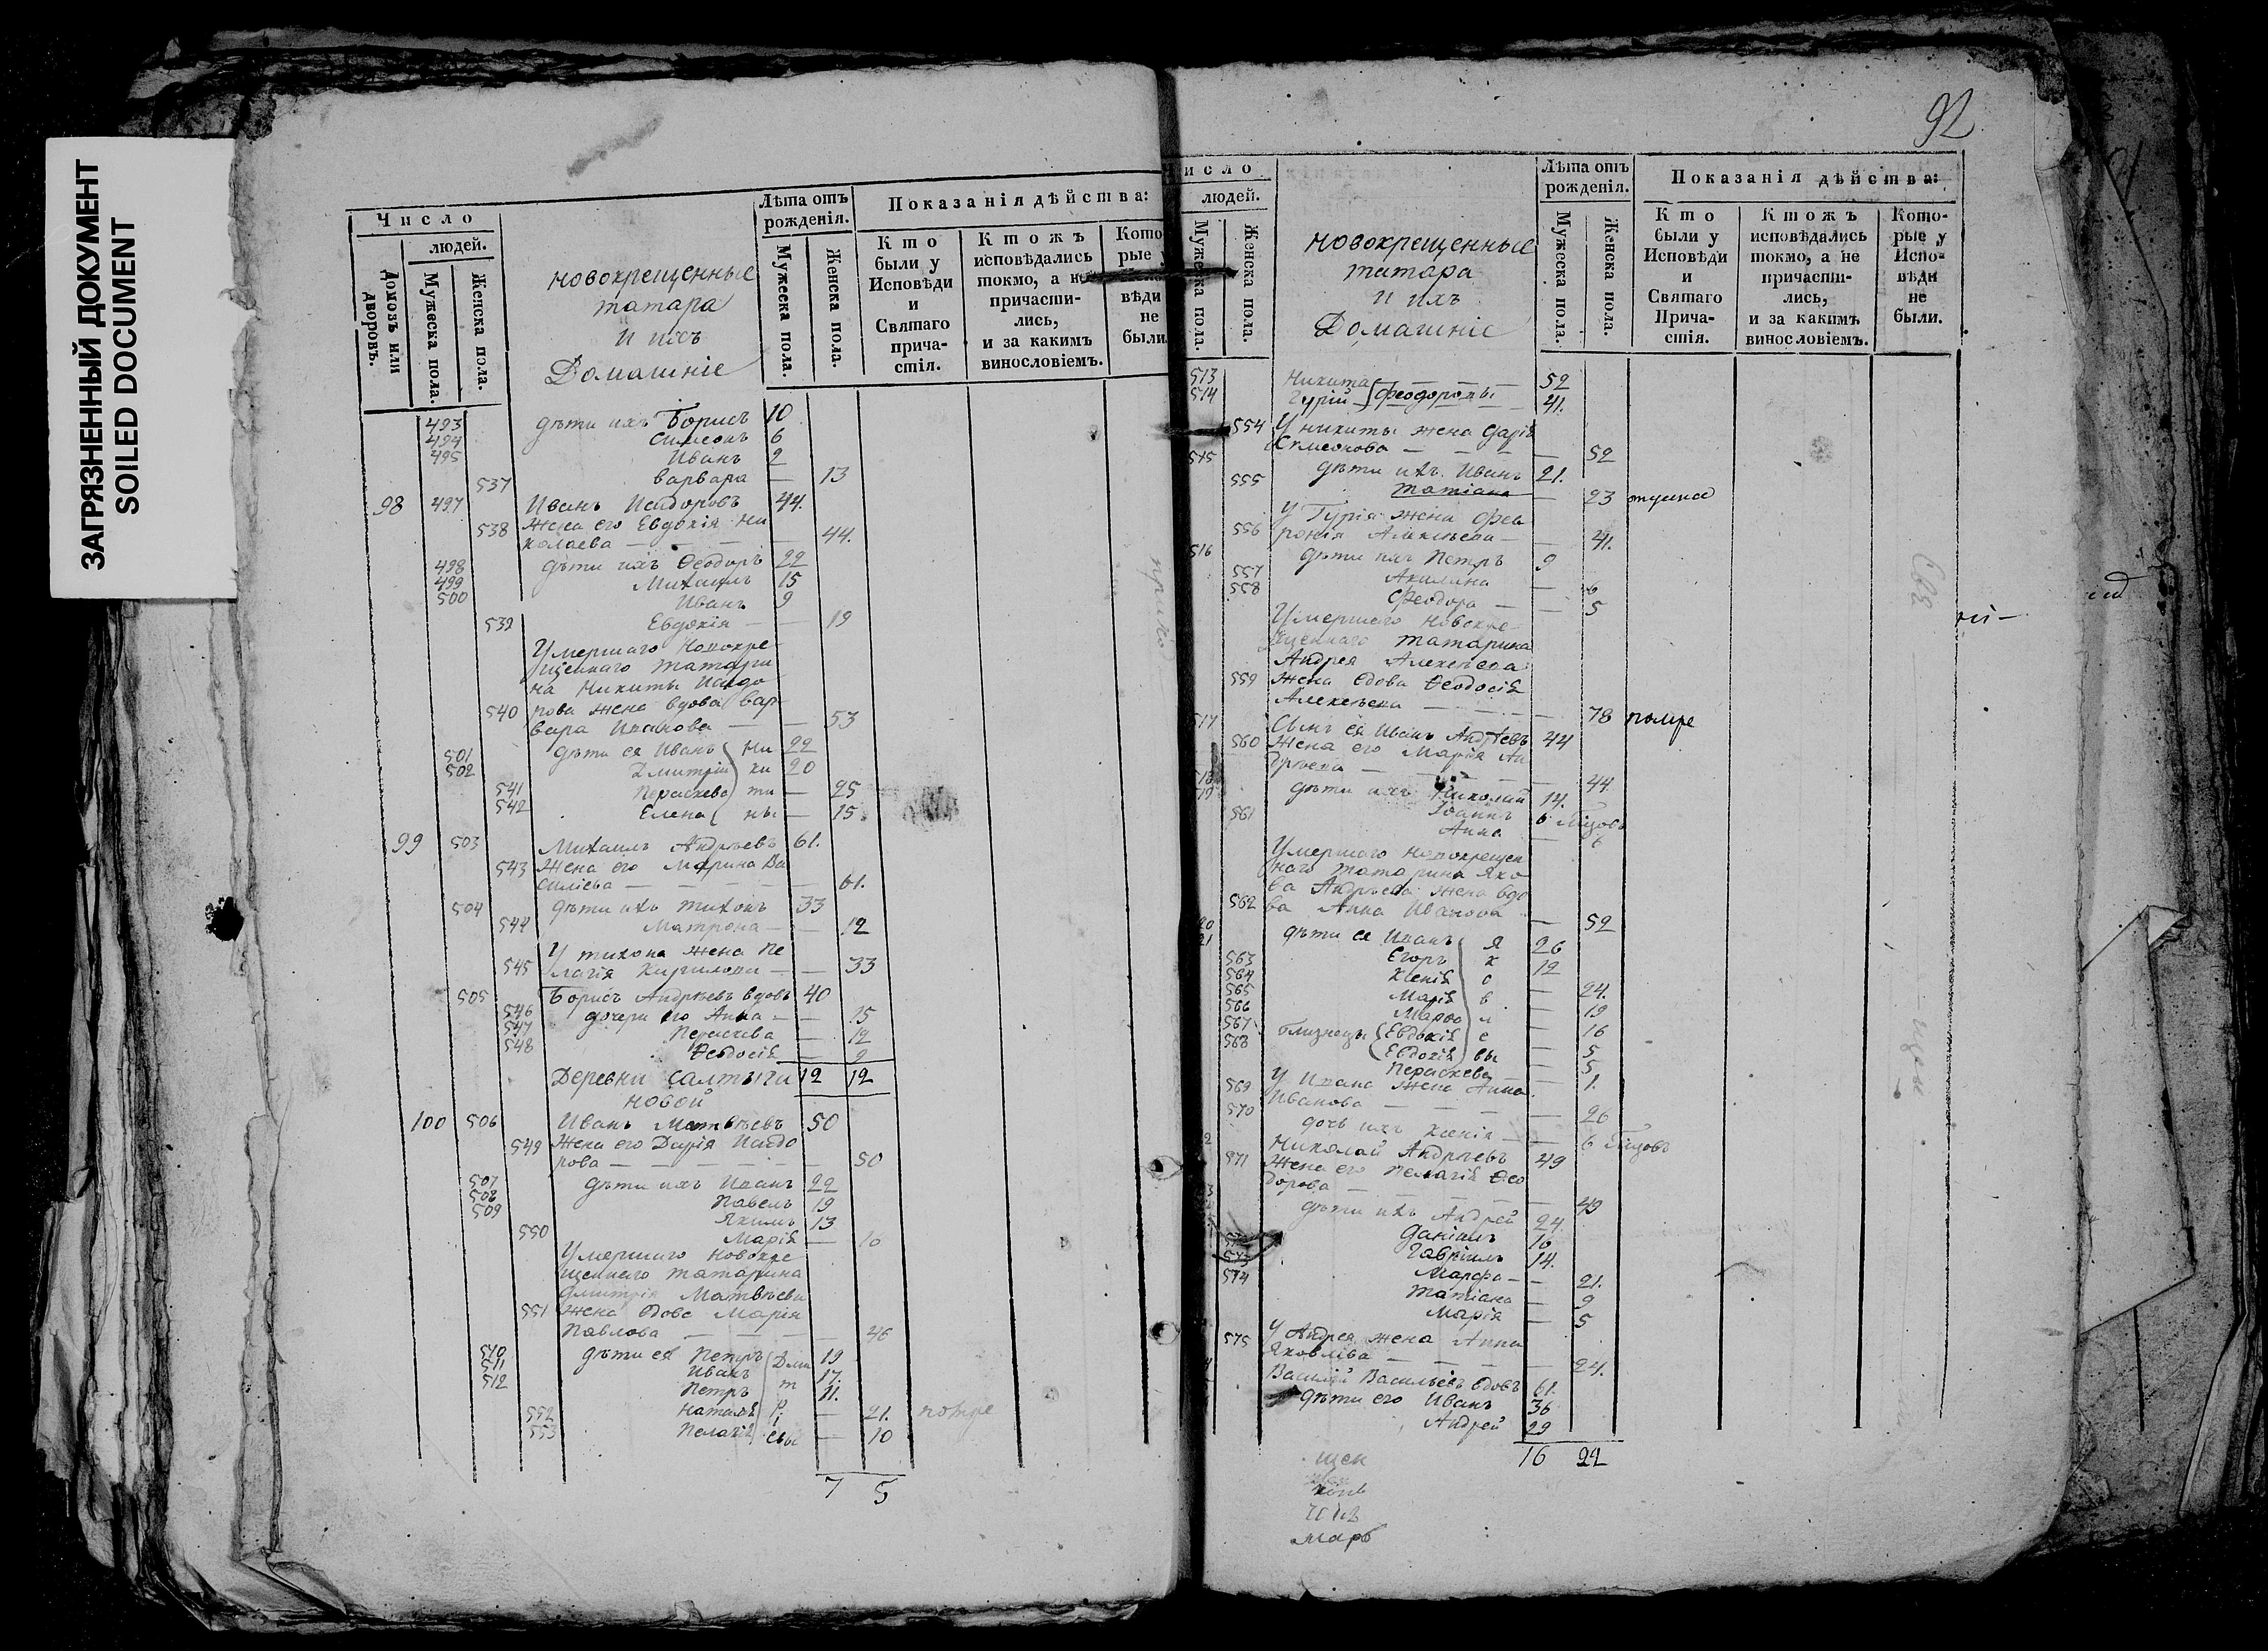 ЗАГРЯЗНЕННЫЙ ДОКУМЕНТ
SOILED DOCUMENT
Число
людей.
Домовъ или дворовъ.
Мужеска пола.
Женска пола.
новокрещенные
татара
и ихъ
Домашніе
Лѣта отъ рожденія.
Мужеска пола.
Женска пола.
Показанія дѣйства:
Кто были у Исповѣди и Святаго причастія.
Ктожъ исповѣдались токмо, а не причастились, и за какимъ винословіемъ.
Которые у вѣди не были
493 дѣти ихъ Борисъ 10
494 Симеонъ 6
495 Иванъ 2
537 варвара — 13
98 497 Иванъ Исидоровъ 44.
538 жена его Евдокія Ни
колаева — 44.
498 дѣти ихъ Ѳеодоръ 22
499 Михаилъ 15
500 Иванъ 9
532 Евдокія — 19
Умершаго Новокре
щеннаго татари
на Никиты Исидо
540 рова жена вдова вар
вара Иванова — 53
501 дѣти ея Иванъ Ни 22
502 Дмитрій ки 20
541 Параскева ти — 25
542 Елена ны — 15.
99 503 Михаилъ Андрѣевъ 61.
543 жена его Марина Ва
силіева — 61.
504 дѣти ихъ тихонъ 33
544 Матрона — 12
У тихона жена Пе
545 лагія Кирилова — 33
505 Борисъ Андрѣевъ вдовъ 40
546 дочери его Анна — 15
547 Параскева — 12
548 Ѳеодосія — 9
Деревни Салтыги 12 12
новой
100 506 Иванъ Матвѣевъ 50
549 жена его Дарія Исидо
рова — 50
507 дѣти ихъ Иванъ 22
508 Павелъ 19
509 Якимъ 13
550 Марія — 16
Умершаго новокре
щеннаго татарина
Дмитрія Матвѣева
551 жена вдова Марія
Павлова — 46
510 дѣти ея Петръ Дми 19
511 Иванъ т 17.
512 Петръ р 11.
552 наталія і — 21. помре
553 Пелагія евы — 10
7 5
92
исло
людей.
Мужеска пола.
Женска пола.
новокрещенные
татара
и ихъ
Домашніе
Лѣта отъ рожденія.
Мужеска пола.
Женска пола.
Показанія дѣйства:
Кто были у Исповѣди и Святаго Причастія.
Ктожъ исповѣдались токмо, а не причастились, и за какимъ винословіемъ.
Которые у Исповѣди не были.
513 Никита Феодоровы — 52
514 Гурій — 41.
554 У никиты жена Дарія
Симеонова — 52
515 дѣти ихъ Иванъ 21.
555 татіана — 23
У Гурія жена Фев
556 ронія Алексѣева — 41.
516 дѣти ихъ Петръ 9
557 Акилина — 6
558 Феодора — 5
Умершаго новокре
щеннаго татарина
Андрея Алексѣева
559 жена вдова Ѳеодосія
Алексѣева — 78 помре
517 Сынъ ея Иванъ Андрѣевъ 44
560 жена его Марія Ан
дрѣева — 44
дѣти ихъ Николай 14.
Іоаннъ 6 мѣсяцовъ
561 Анна — 6
Умершаго новокрещен
наго татарина Яко
ва Андрѣева жена вдо
562 ва Анна Иванова — 52
дѣти ея Иванъ Я 26
Егоръ к 12
563 Ксенія о — 24.
564 Марія в — 19
565 Марфа л — 16
566 близнецы Евдокія е — 5
567 Евдокія вы — 5
568 Параскева — 1.
У Ивана жена Анна
569 Иванова — 26
570 дочь ихъ Ксенія — 6 мѣсяцовъ
Николай Андрѣевъ 49
571 жена его Пелагія Ѳео
дорова — 49
дѣти ихъ Андрей 24.
Даніилъ 16
Гавріилъ 14.
Марфа — 21.
татіана — 9
574 Марія — 5
У Андрея жена Анна
575 Яковлева — 24.
Василій Васильевъ вдовъ 61.
дѣти его Иванъ 36
Андрей 29
16 22
щен